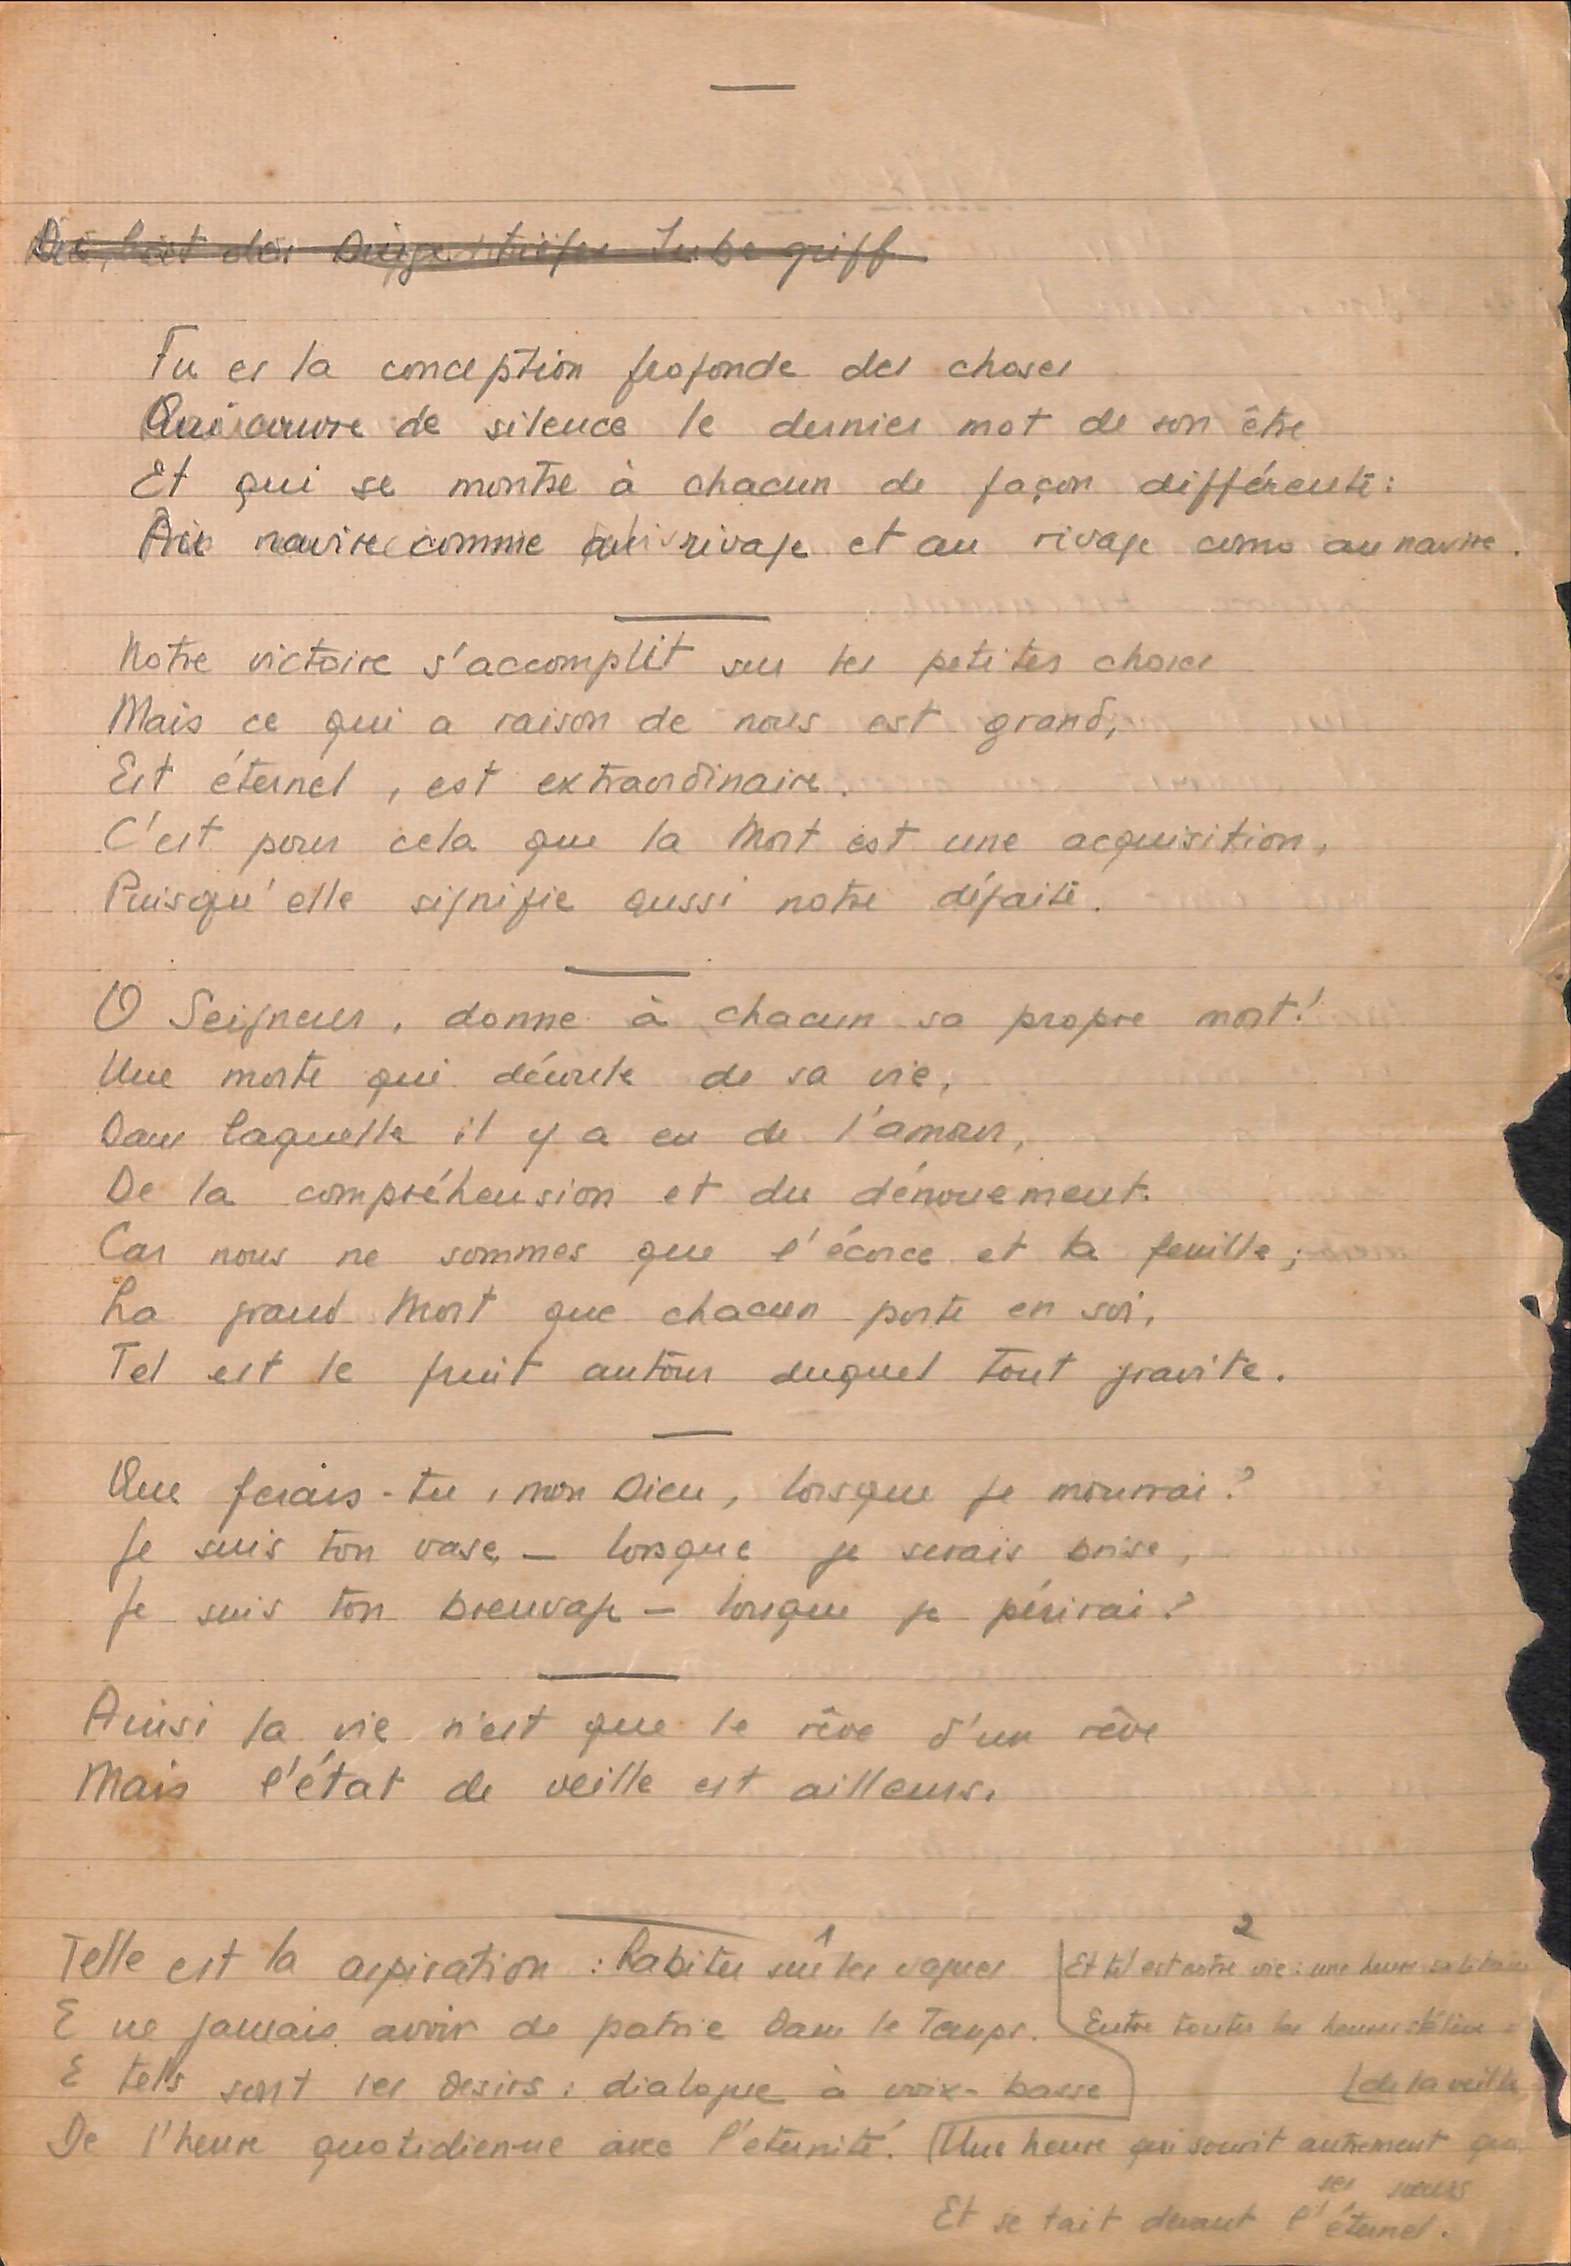 Du bist der Dinge tiefer Inbegriff
Tu es la conception profonde des choses
Qui couvre de silence le dernier mot de son être
Et qui se montre à chacun de façon différente:
Au navire comme rivage et au rivage come au navire.
Notre victoire s'accomplit sur les petites choses
Mais ce qui a raison de nous est grand,
Est éternel, est extraordinaire.
C'est pour cela que la Mort est une acquisition,
Puisqu'elle signifie aussi notre défaite.
O Seigneur, donne à chacun sa propre mort!
Une morte qui découle de sa vie,
Dans laquelle il y a eu de l'amour,
De la compréhension et du dénouement.
Car nous ne sommes que l'écorce et la feuille;
La grand Mort que chacun porte en soi,
Tel est le fruit autour duquel tout gravite.
Que ferais-tu, mon Dieu, lorsque je mourrai?
Je suis ton vase – lorsque je serais brise,
Je suis ton breuvage – lorsque je périrai?
Ainsi la vie n'est que le rêve d'un rêve
Mais l'état de veille est ailleurs.
Telle est la aspiration : habiter sur les vagues
E ne jamais avoir de patrie dans le Temps.
E tels sont les desirs : dialogue à voix-basse
De l'heure quotidienne avec l'eternité.
1
2
Et tel est notre vie : une heure solitaire
Entre toutes les heures s'élève
(de la veille
Une heure qui sourit autrement que
ses sœurs
Et se tait devant l'éternel.